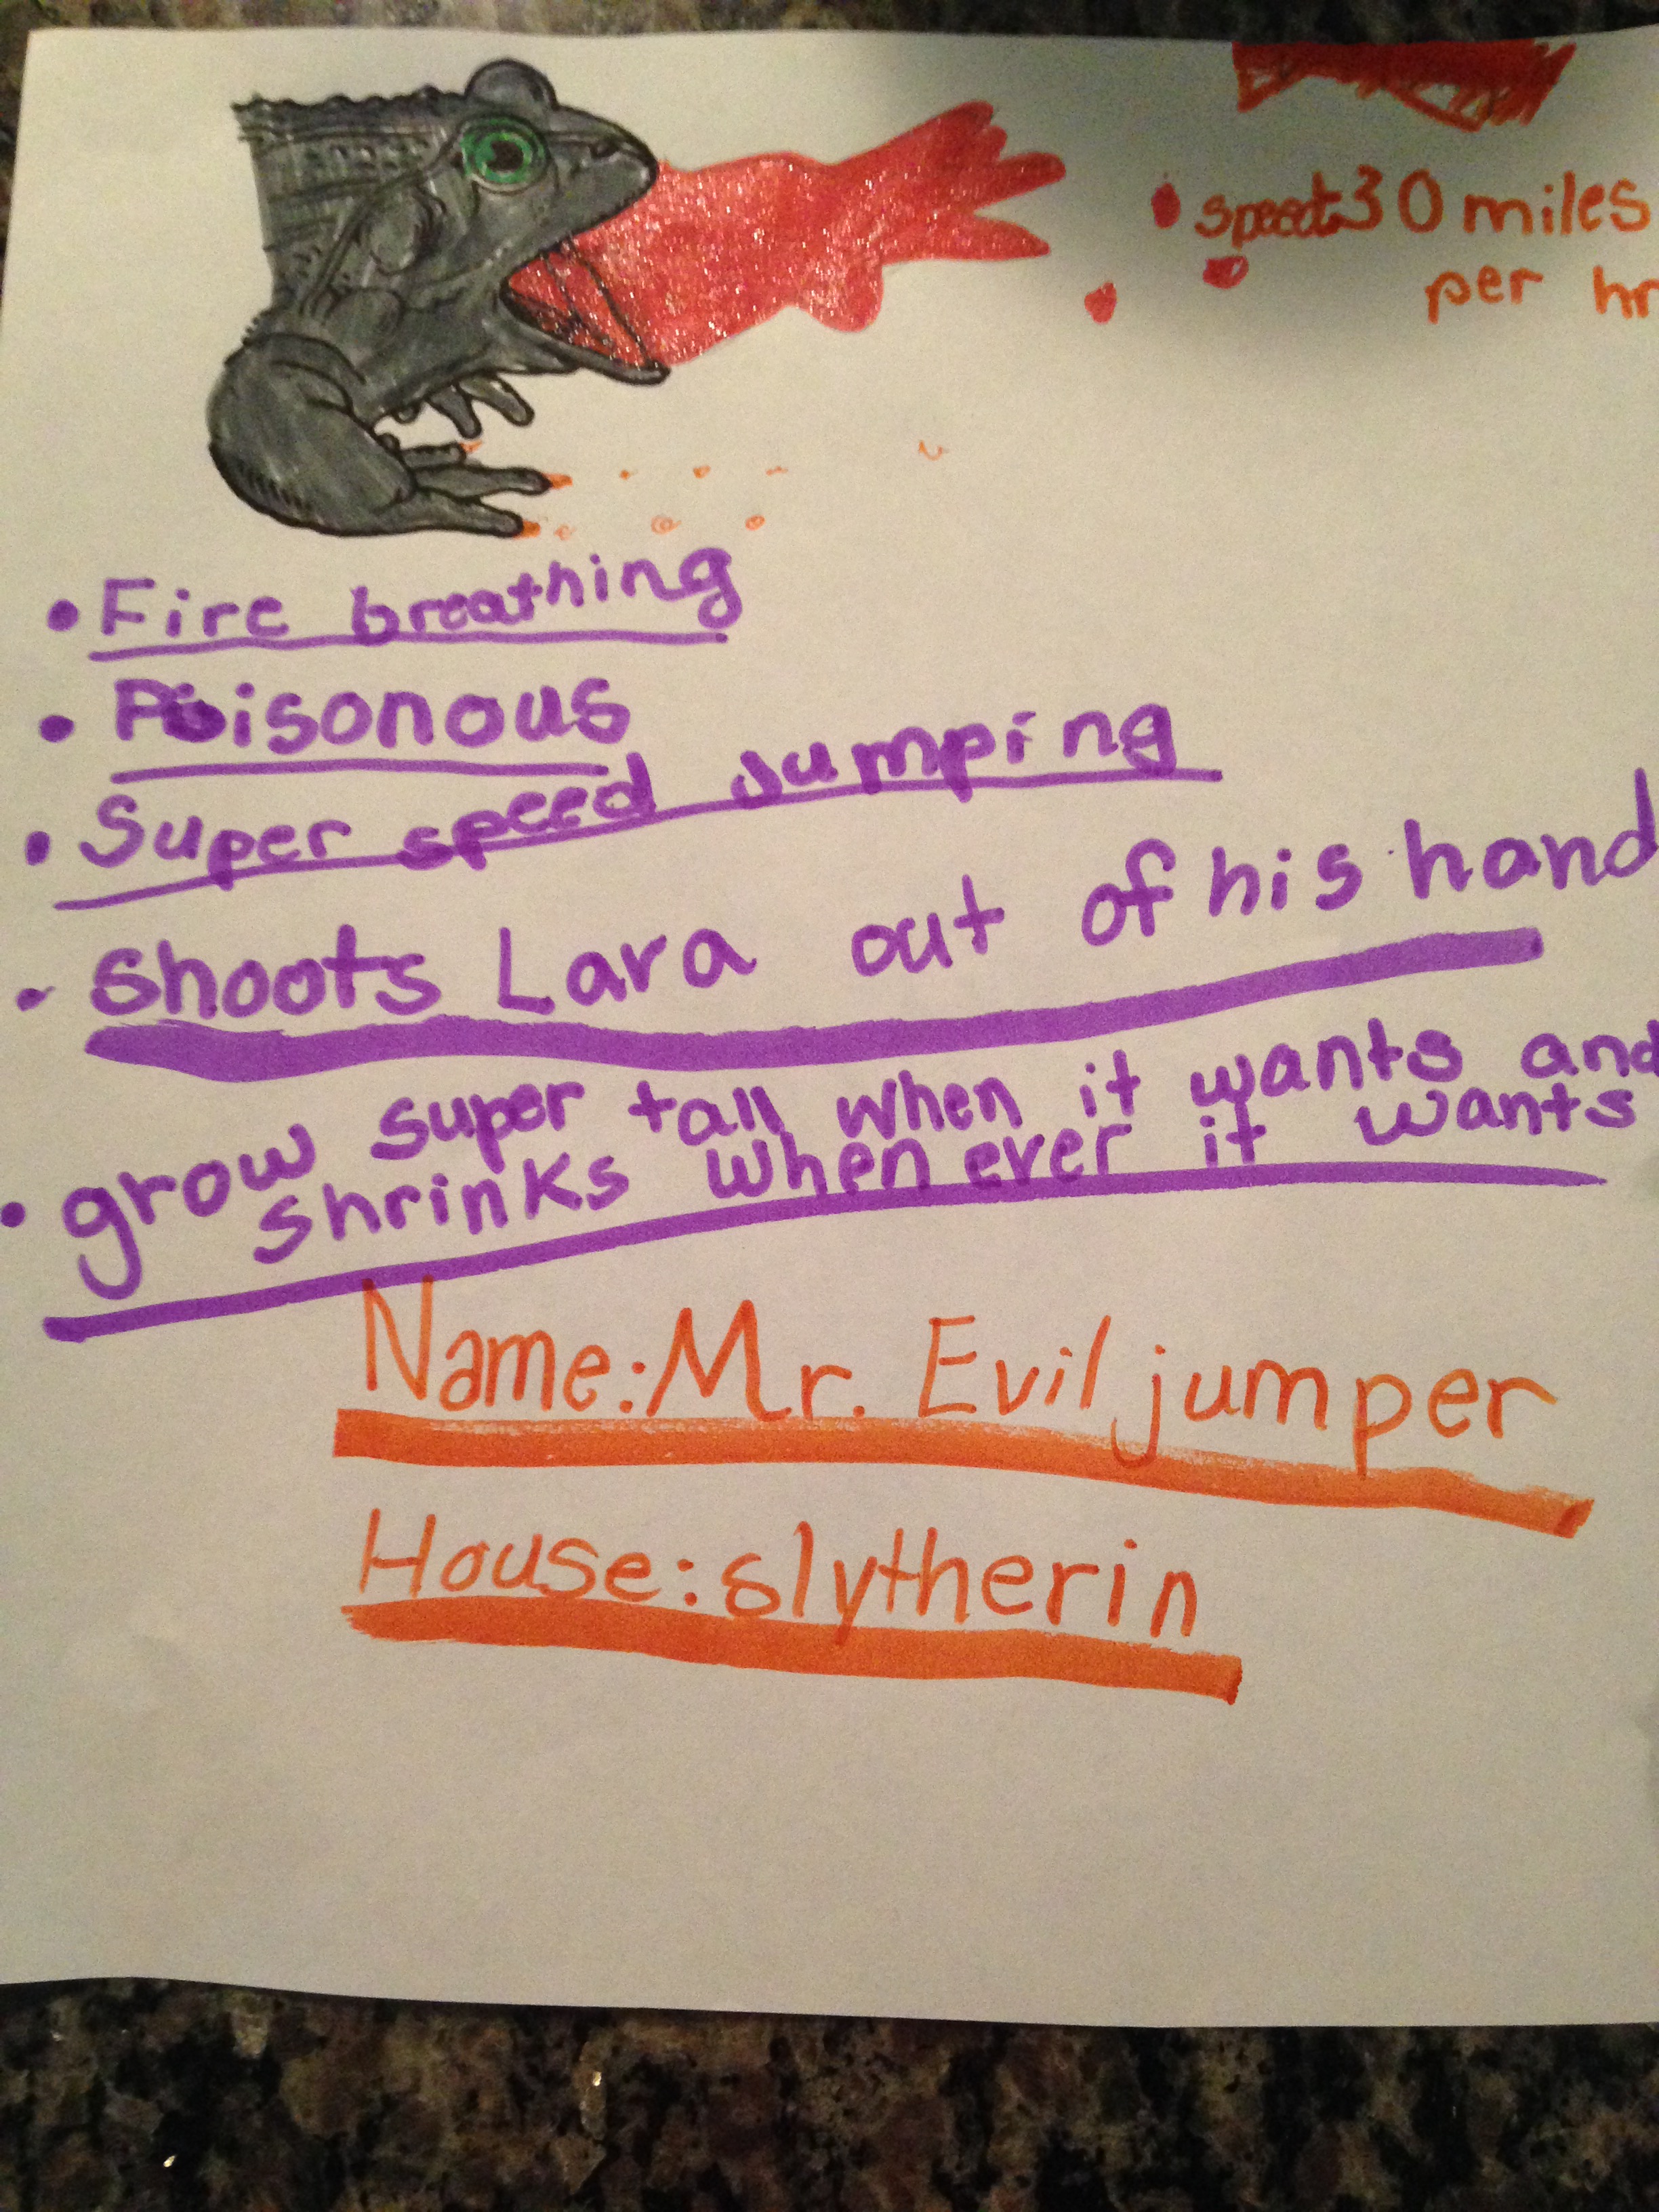 speed:30 miles
per hr
• Fire breathing
• Poisonous
• Super speed Jumping
• Shoots Lara out of his hand
• grow super tall when it wants and
shrinks when ever it wants
Name: Mr. Evil jumper
House: slytherin